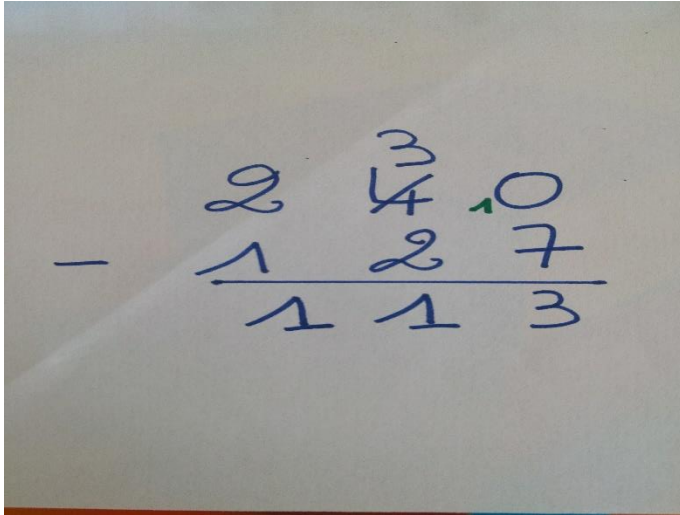 3
2 4 10
- 1 2 7
1 1 3